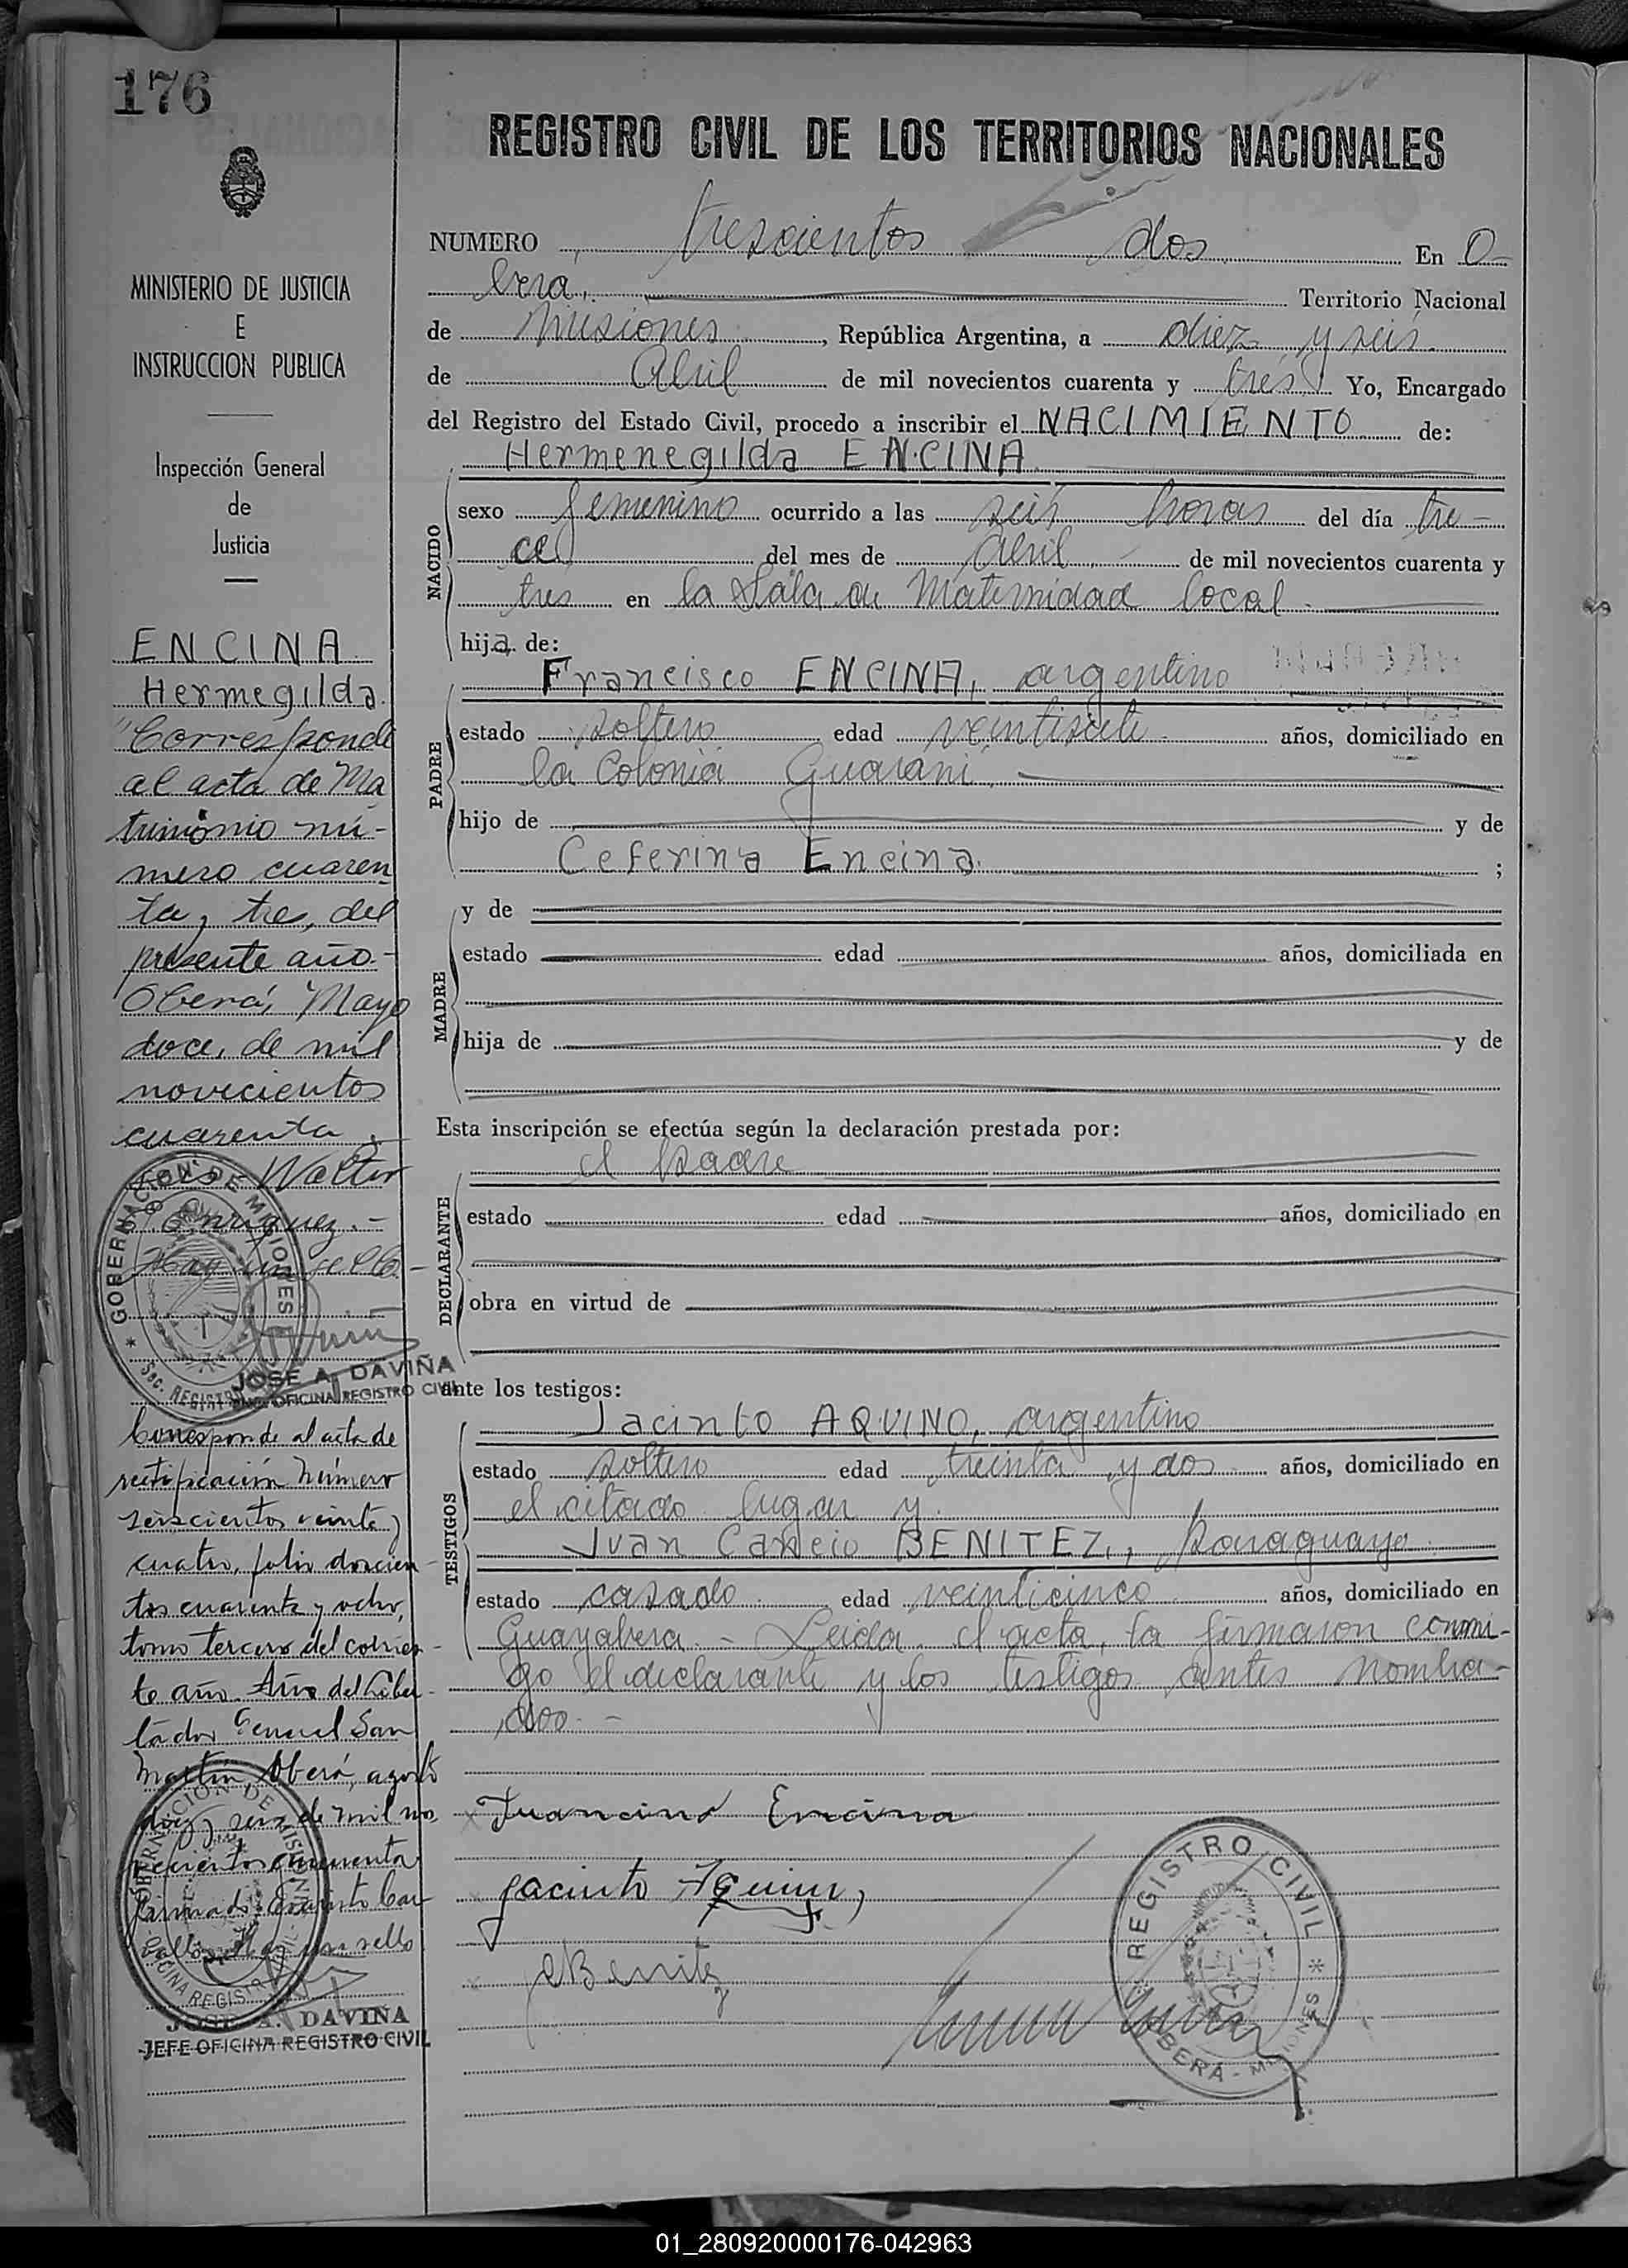 176
REGISTRO CIVIL DE LOS TERRITORIOS NACIONALES
NUMERO trescientos dos En O-
bera, Territorio Nacional
de Misiones, República Argentina, a diez y seis
de Abril de mil novecientos cuarenta y tres Yo, Encargado
del Registro del Estado Civil, procedo a inscribir el NACIMIENTO de:
Hermenegilda ENCINA
NACIDO
sexo femenino ocurrido a las seis horas del día tre-
ce del mes de Abril de mil novecientos cuarenta y
tres en la Sala de Maternidad local.
hija de:
PADRE
Francisco ENCINA, argentino
estado soltero edad veintisiete años, domiciliado en
la Colonia Guarani,
hijo de y de
Ceferina Encina. ;
MADRE
y de
estado edad años, domiciliada en
hija de y de
Esta inscripción se efectúa según la declaración prestada por:
DECLARANTE
el padre
estado edad años, domiciliado en
obra en virtud de
ante los testigos:
TESTIGOS
Jacinto AQUINO, argentino
estado soltero edad treinta y dos años, domiciliado en
el citado lugar y
Juan BENITEZ, paraguayo
estado casado edad veinticinco años, domiciliado en
Guayabera. - Leida el acta, la firmaron conmi-
go el declarante y los testigos antes nombra-
dos. -
Encina
Jacinto Aquino
Benitez
REGISTRO CIVIL
OBERÁ - MISIONES
MINISTERIO DE JUSTICIA
E
INSTRUCCION PUBLICA
Inspección General
de
Justicia
ENCINA
Hermegilda.
"Corresponde
al acta de Ma
trimonio nú-
mero cuaren
ta y tres, del
presente año.-
Oberá, Mayo
doce, de mil
novecientos
cuarenta
y seis Walter
Enriquez.-
Hay un sello.-
GOBERNACION DE MISIONES
SEC. REGISTRO CIVIL
JOSE A. DAVIÑA
OFICINA REGISTRO CIVIL
Corresponde al acta de
rectificación número
seiscientos veinte y
cuatro, folio doscien-
tos cuarenta y ocho,
tomo tercero del corrien-
te año. Año del Liber-
tador General San
Martín, Oberá, agosto
diez y seis de mil no-
vecientos cincuenta
Firmado: Evaristo Car-
ballo. Hay un sello
GOBERNACION DE MISIONES
OFICINA REGISTRO CIVIL
JOSE A. DAVIÑA
JEFE OFICINA REGISTRO CIVIL
01_280920000176-042963